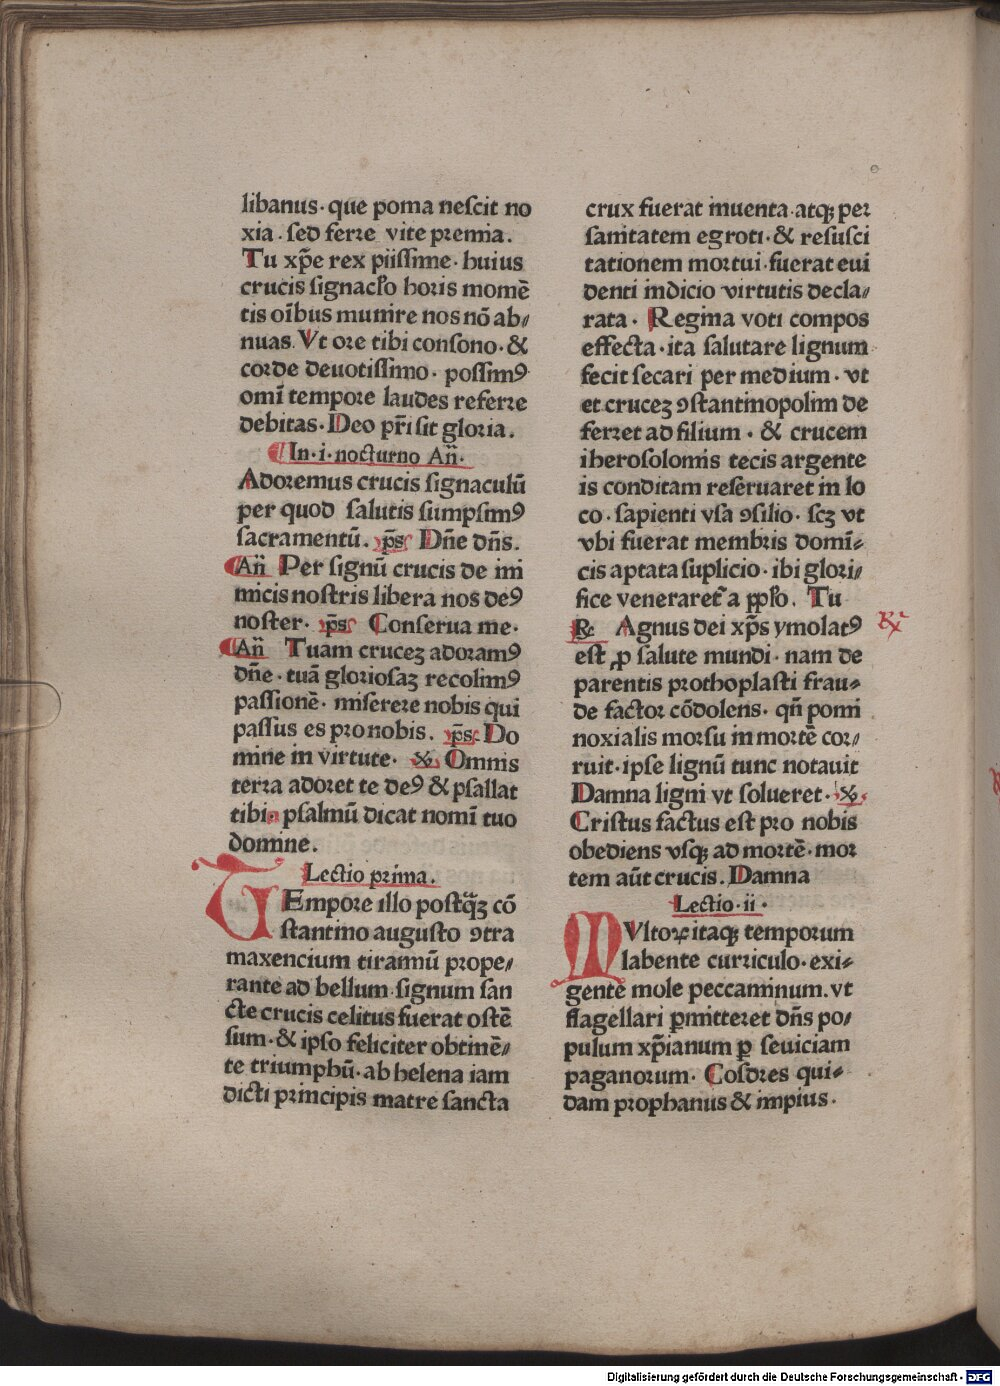 libanus· que poma nescit no
xia . sed ferre vite premia.
Tu xp̄e rex piissime· huius
crucis signac̄lo horis momē
tis oı̄bus munire nos nō ab⸗
nuas. Vt ore tibi consono· &
corde deuotissimo· possimꝯ
omı̄ tempore laudes referre
debitas· Deo pr̄i sit gloria.
In·i·nocturno An̄·
Adoremus crucis signaculū
per quod salutis sumpsimꝯ
sacramentū. p̄s Dn̄e dn̄s.
An̄ Per signū crucis de ini
micis nostris libera nos deꝯ
noster· p̄s Conserua me·
An̄ Tuam crucez adoramꝯ
dn̄e· tuā gloriosaz recolimꝯ
passionē· miserere nobis qui
passus es pro nobis. p̄s· Do
mine in virtute· ℣ Omnis
terra adoret te deꝯ & psallat
tibi psalmū dicat nomı̄ tuo
domine.
Lectio prima.
TEmpore illo postꝙ̄ cō
stantino augusto ꝯtra
maxencium tirannū prope⸗
rante ad bellum signum san
cte crucis celitus fuerat ostē
sum· & ipso feliciter obtinē⸗
te triumphū· ab helena iam
dicti principis matre sancta
crux fuerat inuenta·atqꝫ per
sanitatem egroti· & resusci
tationem mortui·fuerat eui
denti indicio virtutis decla⸗
rata· Regina voti compos
effecta· ita salutare lignum
fecit secari per medium· vt
et crucez ꝯstantinopolim de
ferret ad filium· & crucem
iherosolomis tecis argente
is conditam reseruaret in lo
co· sapienti vsa ꝯsilio· scꝫ vt
vbi fuerat membris domı̄⸗
cis aptata suplicio· ibi glori⸗
fice veneraret̄ a pp̄lo. Tu
℟ Agnus dei xp̄s ymolatꝯ
est ꝓ salute mundi· nam de
parentis prothoplasti frau⸗
de factor cōdolens· qn̄ pomi
noxialis morsu in mortē cor⸗
ruit· ipse lignū tunc notauit
Damna ligni vt solueret· ℣·
Cristus factus est pro nobis
obediens vsqꝫ ad mortē· mor
tem aūt crucis. Damna
℟
Lectio·ii·
MVltoꝝ itaqꝫ temporum
labente curriculo· exi⸗
gente mole peccaminum. vt
flagellari ꝑmitteret dn̄s po⸗
pulum xp̄ianum ꝑ seuiciam
paganorum· Cosdres qui⸗
dam prophanus & impius·
Digitalisierung gefördert durch die Deutsche Forschungsgemeinschaft - DFG